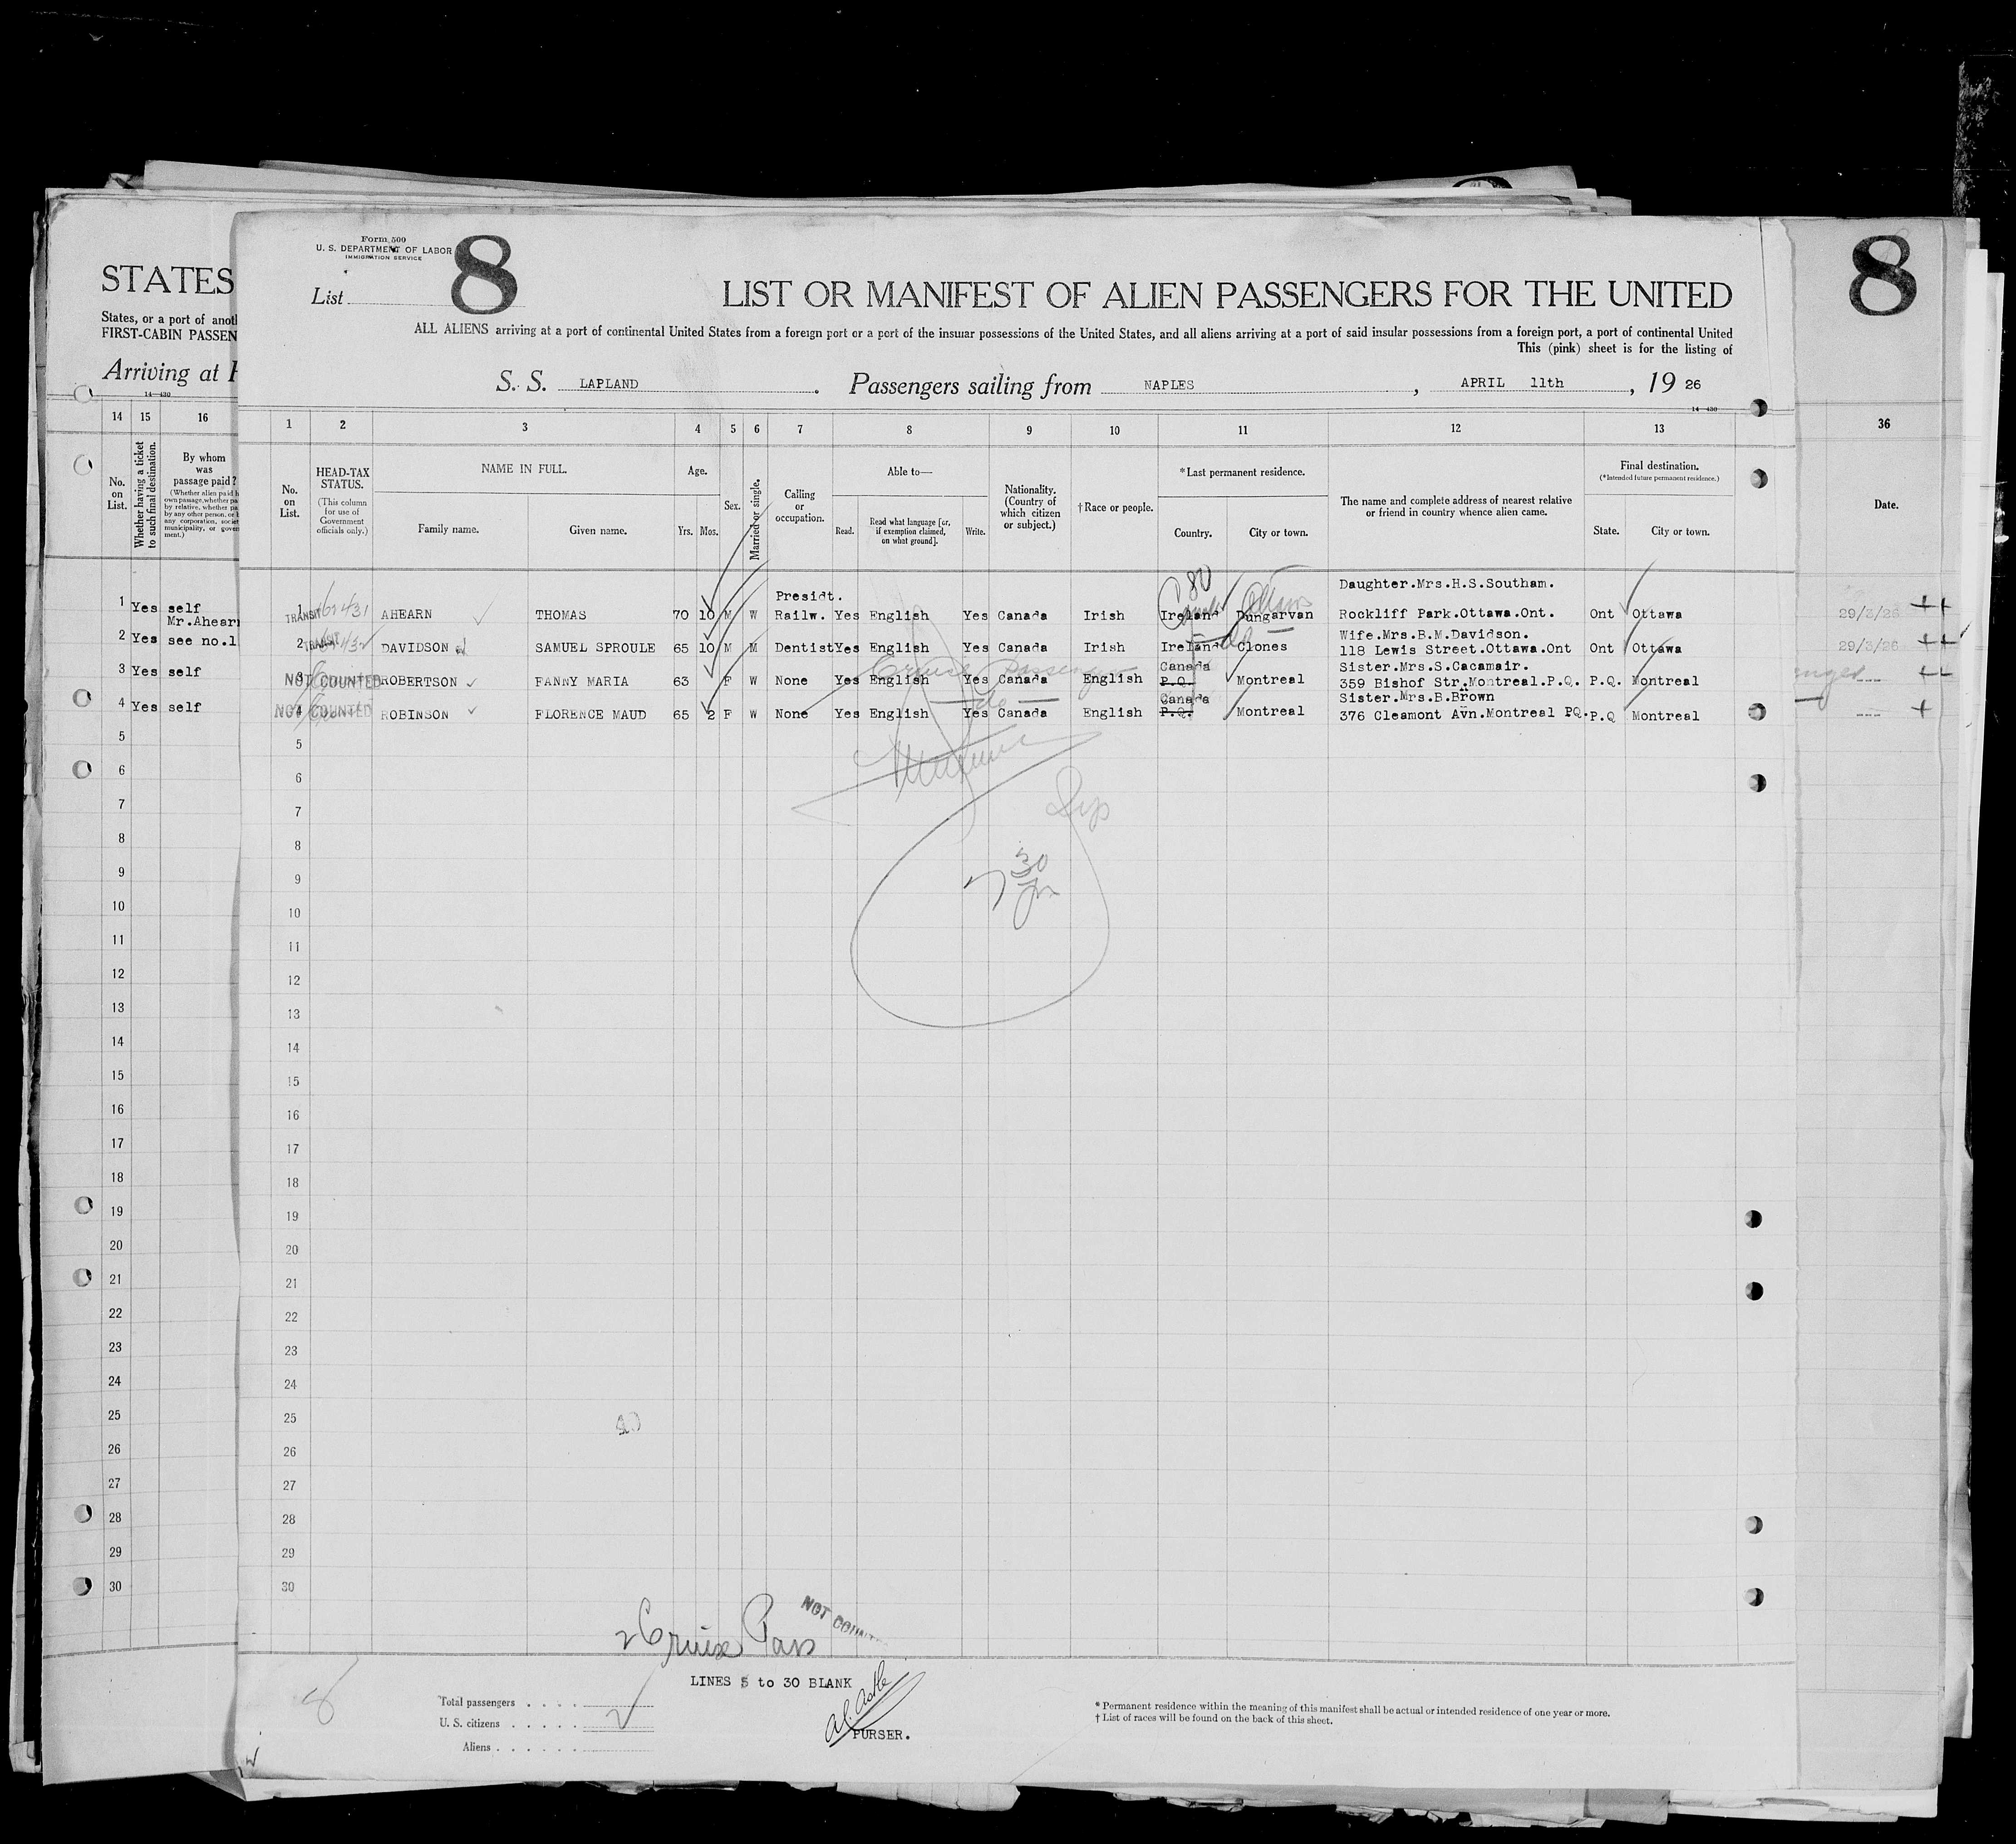 STATES
States, or a port of anoth
FIRST-CABIN PASSEN
Arriving at
14—430
14 15 16
No. on List.
Whether having a ticket to such final destination.
By whom was passage paid?
(Whether alien paid
own passage, whether pa
by relative, whether pa
by any other person, or
any corporation, societ
municipality, or gover
ment.)
1 Yes self
Mr.Ahear
2 Yes see no.1
3 Yes self
4 Yes self
5
6
7
8
9
10
11
12
13
14
15
16
17
18
19
20
21
22
23
24
25
26
27
28
29
30
Form 500
U. S. DEPARTMENT OF LABOR
IMMIGRATION SERVICE
List 8
LIST OR MANIFEST OF ALIEN PASSENGERS FOR THE UNITED
ALL ALIENS arriving at a port of continental United States from a foreign port or a port of the insular possessions of the United States, and all aliens arriving at a port of said insular possessions from a foreign port, a port of continental United
This (pink) sheet is for the listing of
S. S. LAPLAND. Passengers sailing from NAPLES, APRIL 11th, 19 26
14—430
1 2 3 4 5 6 7 8 9 10 11 12 13
No. on List.
HEAD-TAX STATUS.
(This column for use of Government officials only.)
NAME IN FULL.
Family name. Given name.
Age.
Yrs. Mos.
Sex.
Married or single.
Calling or occupation.
Able to—
Read. Read what language [or, if exemption claimed, on what ground]. Write.
Nationality. (Country of which citizen or subject.)
†Race or people.
*Last permanent residence.
Country. City or town.
The name and complete address of nearest relative or friend in country whence alien came.
Final destination.
(*Intended future permanent residence.)
State. City or town.
80
Presidt. Daughter.Mrs.H.S.Southam.
1 TRANSIT AHEARN THOMAS 70 10 M W Railw. Yes English Yes Canada Irish Ireland Dungarvan Rockliff Park.Ottawa.Ont. Ont Ottawa
Wife.Mrs.B.M.Davidson.
2 TRANSIT DAVIDSON SAMUEL SPROULE 65 10 M M Dentist Yes English Yes Canada Irish Ireland Clones 118 Lewis Street.Ottawa.Ont Ont Ottawa
Cruise Passenger
Canada Sister.Mrs.S.Cacamair.
3 NOT COUNTED ROBERTSON FANNY MARIA 63 F W None Yes English Yes Canada English P.Q. Montreal 359 Bishof Str.Montreal.P.Q. P.Q. Montreal
do
Canada Sister.Mrs.B.Brown
4 NOT COUNTED ROBINSON FLORENCE MAUD 65 2 F W None Yes English Yes Canada English P.Q. Montreal 376 Cleamont Avn.Montreal PQ. P.Q Montreal
5
6
7
8
9
10
11
12
13
14
15
16
17
18
19
20
21
22
23
24
25
26
27
28
29
30
7 30
2 Cruise Pass
NOT COUNT
LINES 5 to 30 BLANK
PURSER.
8
Total passengers
U. S. citizens
Aliens
* Permanent residence within the meaning of this manifest shall be actual or intended residence of one year or more.
† List of races will be found on the back of this sheet.
8
36
Date.
29/3/26
29/3/26